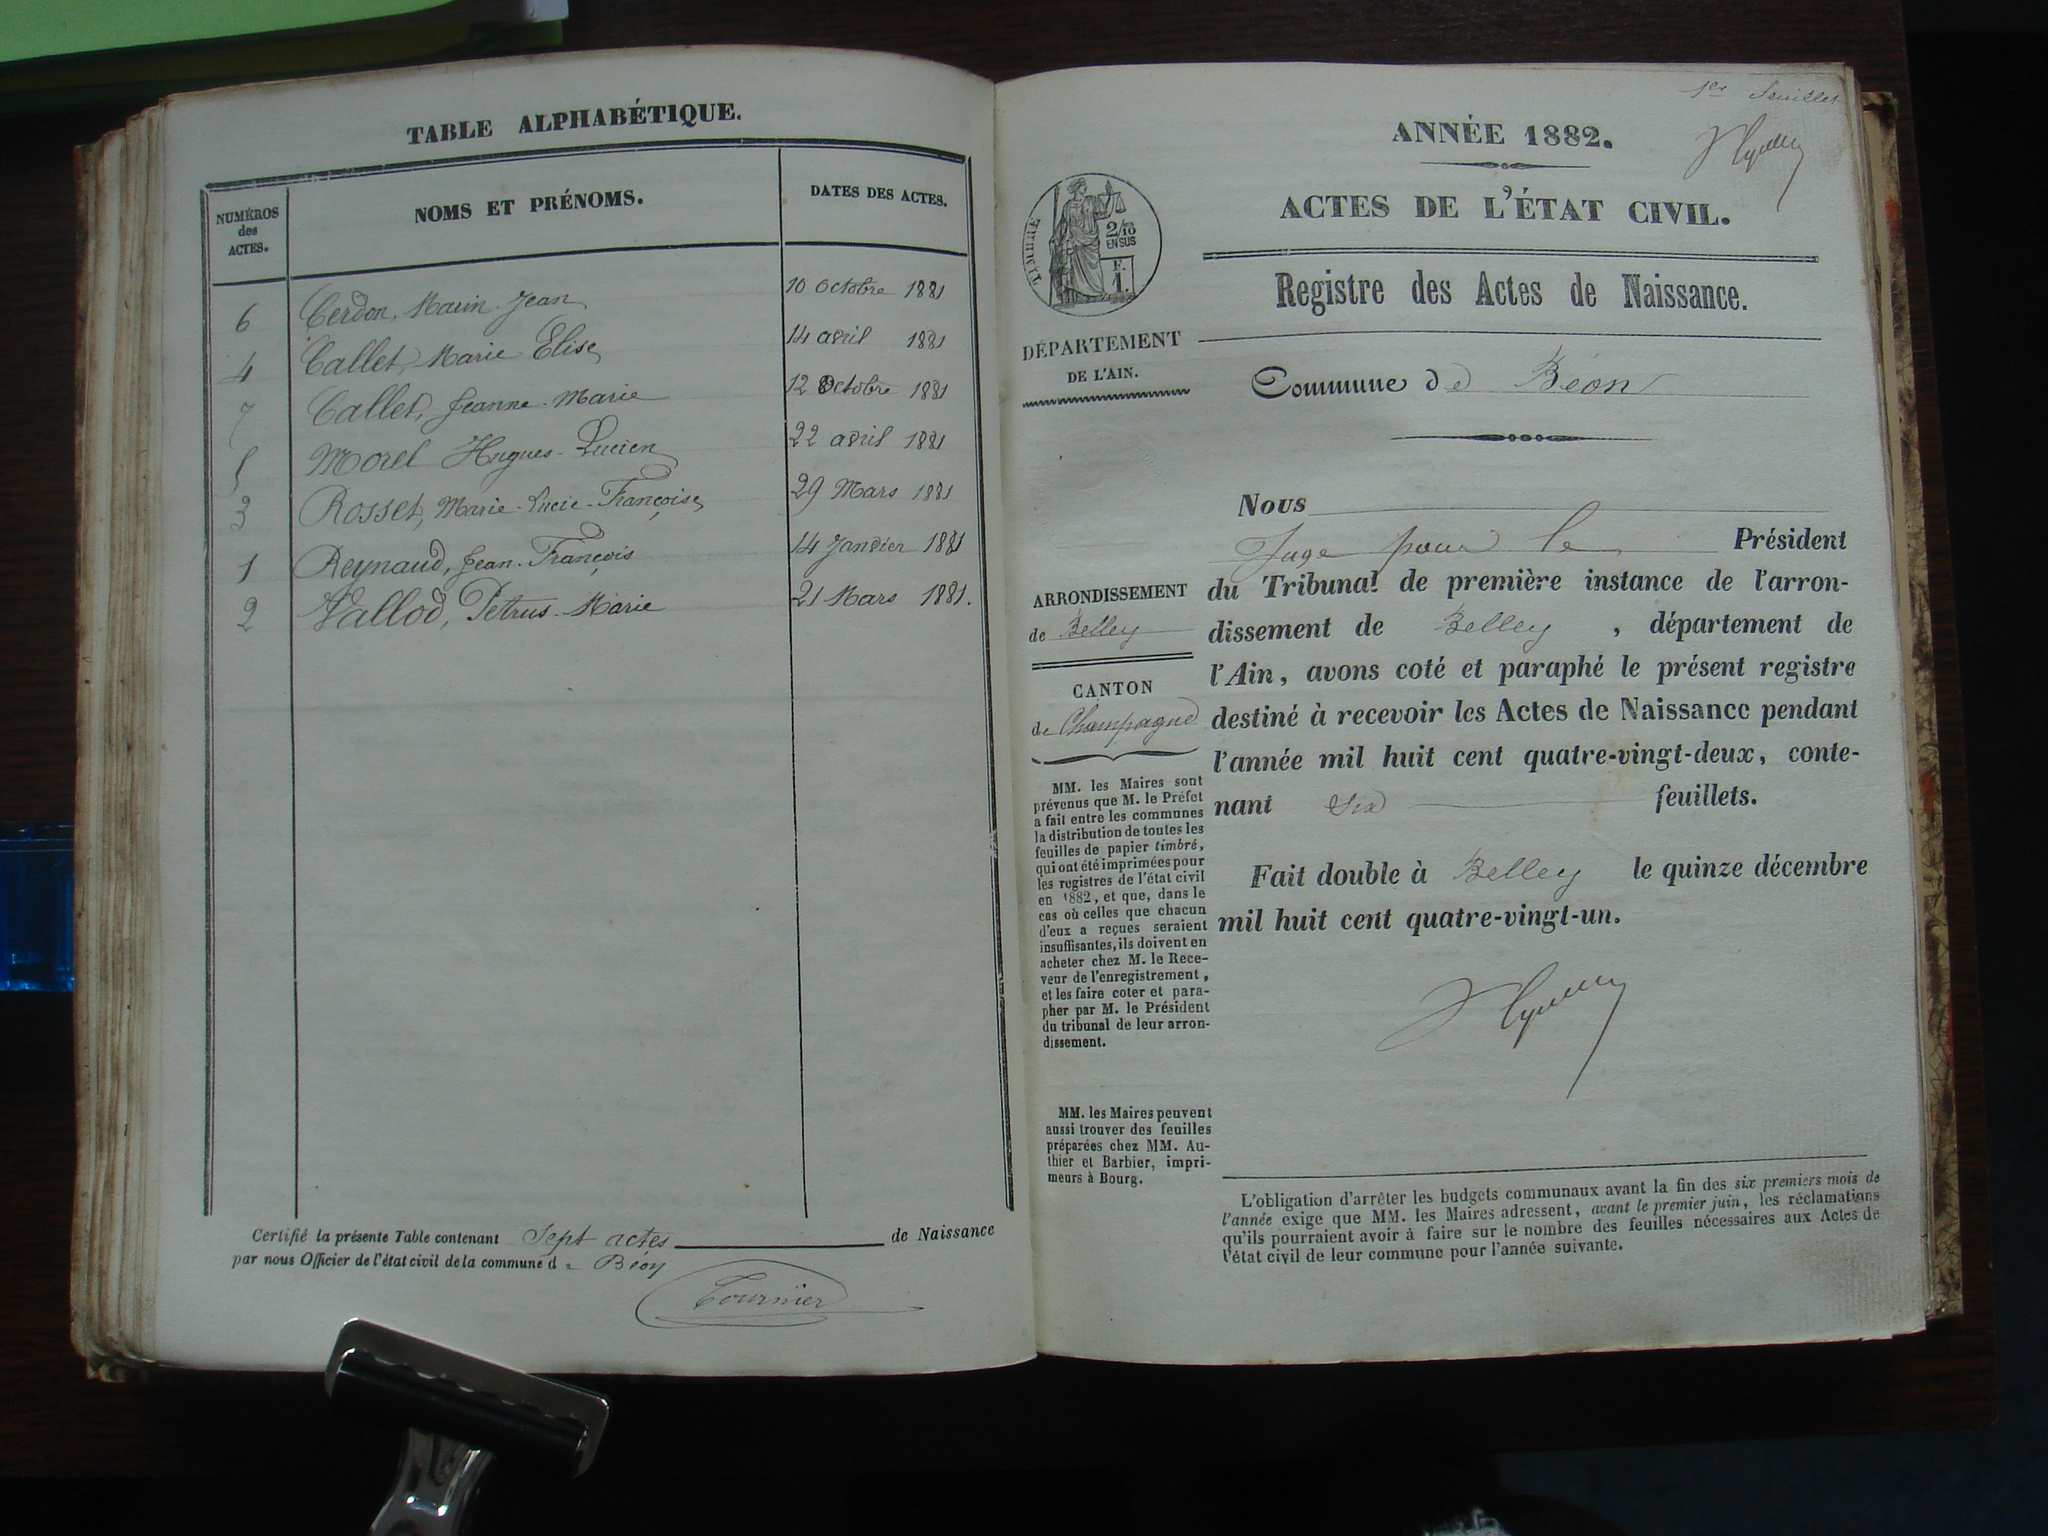 TABLE ALPHABÉTIQUE.
NUMÉROS des ACTES. NOMS ET PRÉNOMS. DATES DES ACTES.
6 Cerdon, Marin Jean 10 Octobre 1881
4 Callet, Marie Elise 14 avril 1881
7 Callet, Jeanne-Marie 12 Octobre 1881
5 Morel Hugues-Lucien 22 avril 1881
3 Rosset, Marie-Lucie-Françoise 29 Mars 1881
1 Reynaud, Jean-François 14 Janvier 1881
2 Vallod, Pétrus-Marie 21 Mars 1881.
Certifié la présente Table contenant Sept actes de Naissance
par nous Officier de l'état civil de la commune de Béon
Tournier
1er feuillet
ANNÉE 1882.
ACTES DE L'ÉTAT CIVIL.
TIMBRE
2/10
EN SUS
F.
1.
Registre des Actes de Naissance.
DÉPARTEMENT
DE L'AIN.
Commune de Béon
ARRONDISSEMENT
de Belley
CANTON
de Champagne
MM. les Maires sont
prévenus que M. le Préfet
a fait entre les communes
la distribution de toutes les
feuilles de papier timbré,
qui ont été imprimées pour
les registres de l'état civil
en 1882, et que, dans le
cas où celles que chacun
d'eux a reçues seraient
insuffisantes, ils doivent en
acheter chez M. le Rece-
veur de l'enregistrement,
et les faire coter et para-
pher par M. le Président
du tribunal de leur arron-
dissement.
MM. les Maires peuvent
aussi trouver des feuilles
préparées chez MM. Au-
thier et Barbier, impri-
meurs à Bourg.
Nous
Juge pour le Président
du Tribunal de première instance de l'arron-
dissement de Belley, département de
l'Ain, avons coté et paraphé le présent registre
destiné à recevoir les Actes de Naissance pendant
l'année mil huit cent quatre-vingt-deux, conte-
nant Six feuillets.
Fait double à Belley le quinze décembre
mil huit cent quatre-vingt-un.
L'obligation d'arrêter les budgets communaux avant la fin des six premiers mois de
l'année exige que MM. les Maires adressent, avant le premier juin, les réclamations
qu'ils pourraient avoir à faire sur le nombre des feuilles nécessaires aux Actes de
l'état civil de leur commune pour l'année suivante.